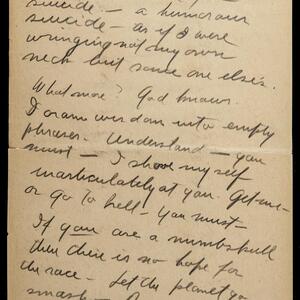 suicide — a humorous
suicide — as if I were
wringing not my own
neck but some one else's.
What more? God knows.
I cram wisdom into empty
phrases. Understand — you
must — I shove myself
inarticulately at you. Get me —
or go to hell — you must —
If you are a numbskull
then there is no hope for
the race — Let the planet go
smash —